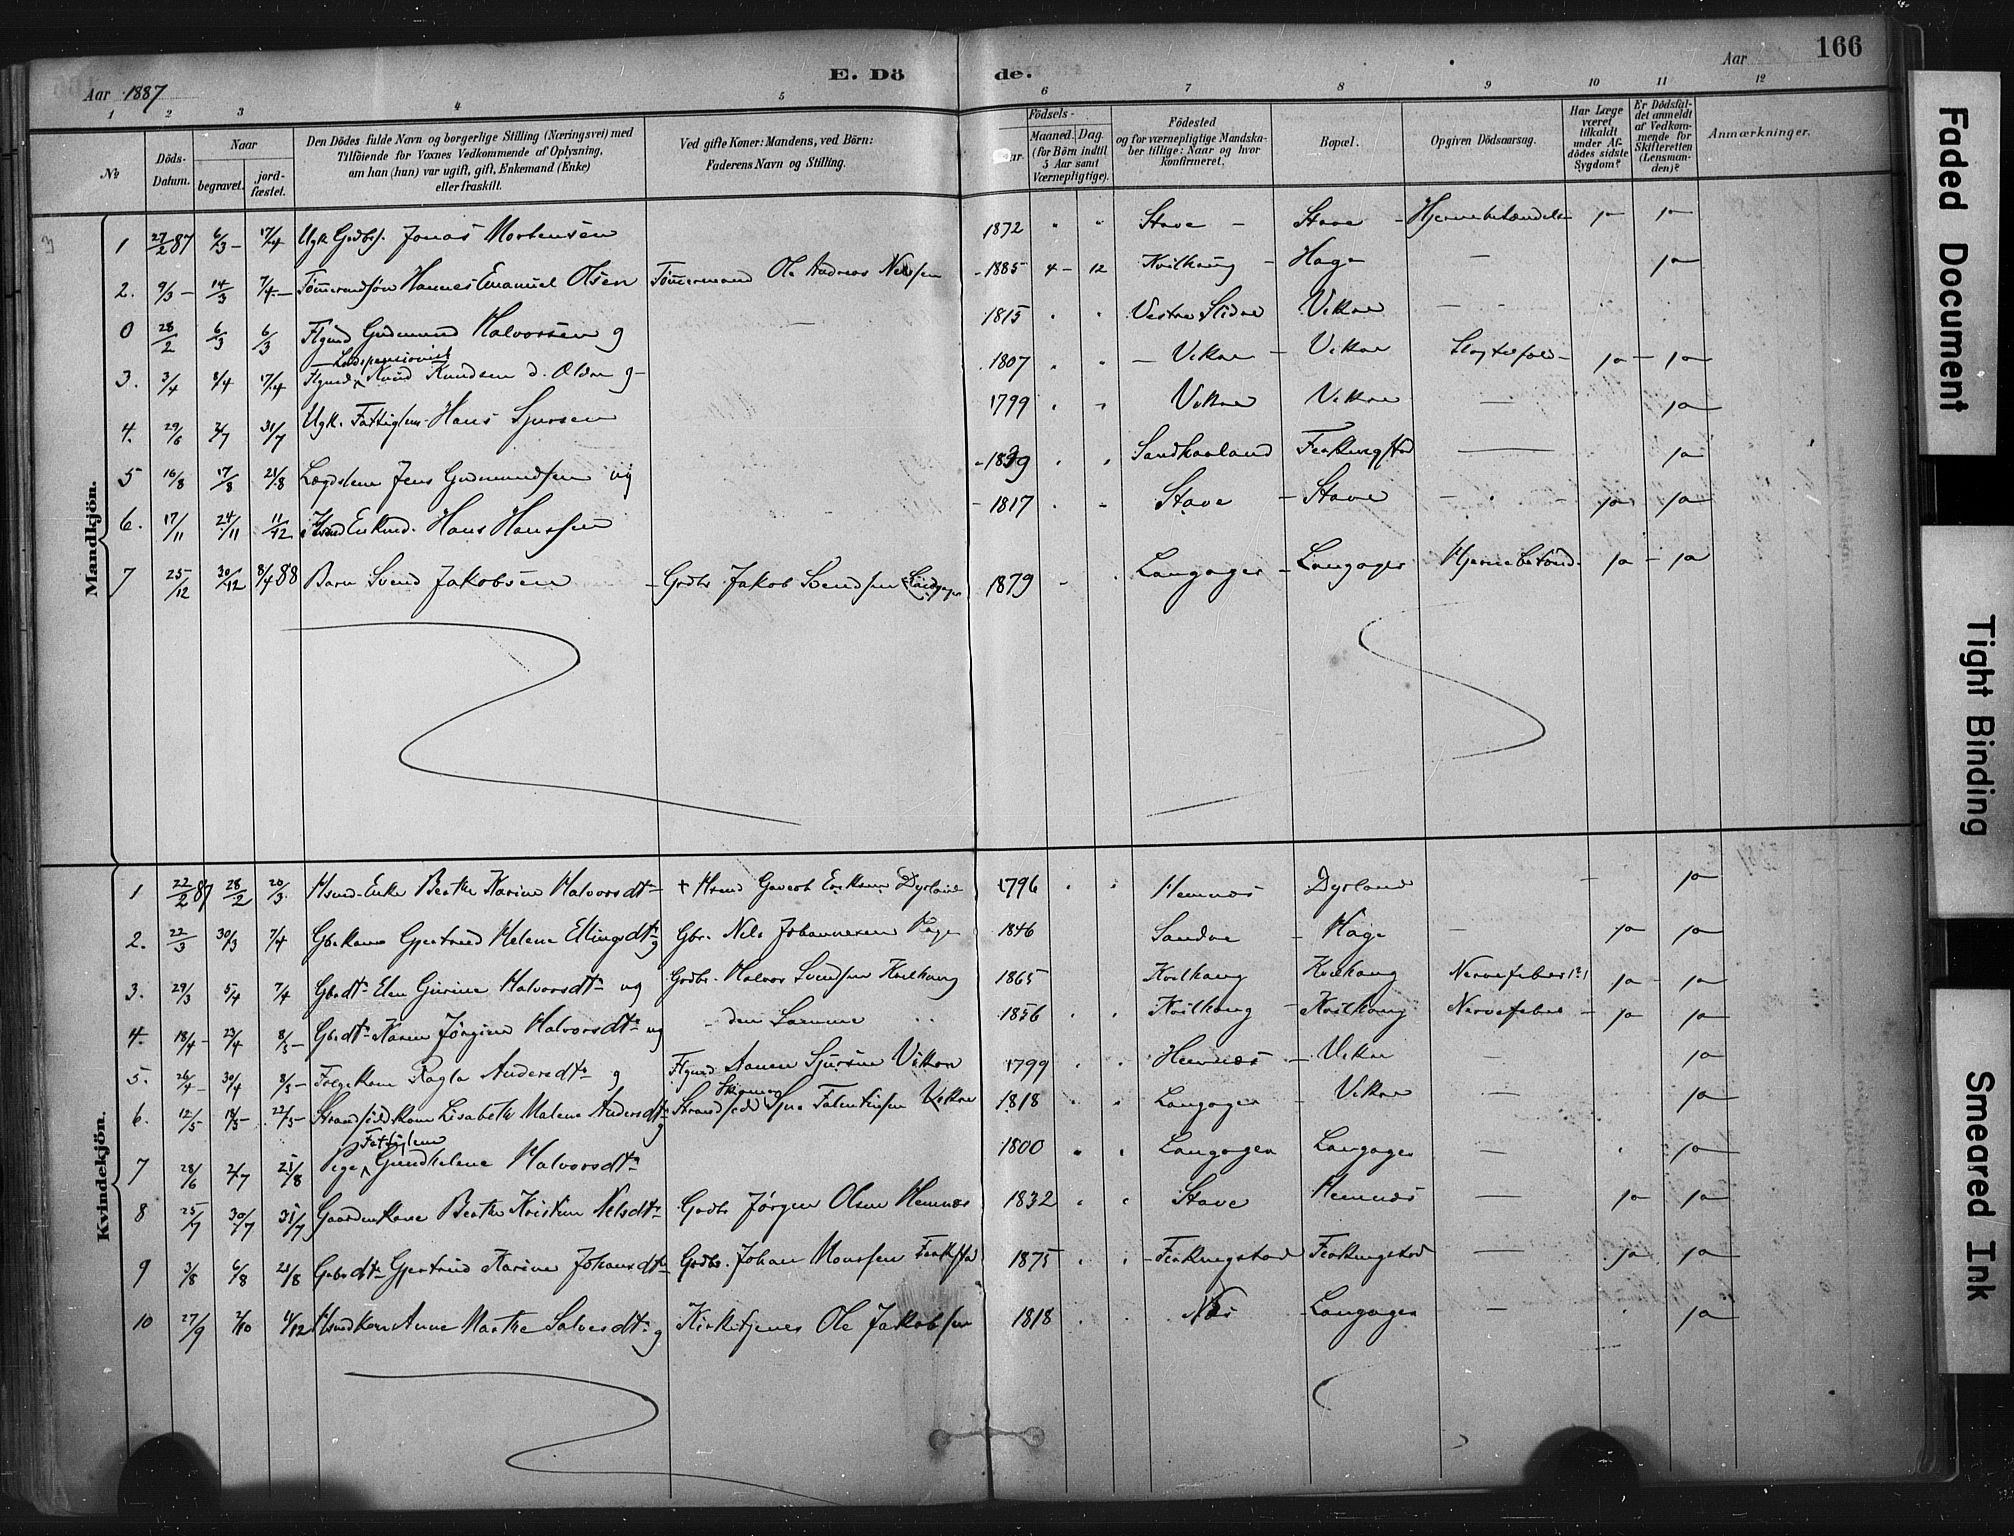 166
Aar 1887
E. Dö de.
Aar
1 2 3 4 5 6 7 8 9 10 11 12
№
Döds-Datum.
Naar
begravet.
jord-fæstet.
Den Dödes fulde Navn og borgerlige Stilling (Næringsvei) med
Tilföiende for Voxnes Vedkommende af Oplysning,
om han (hun) var ugift, gift, Enkemand (Enke)
eller fraskilt.
Ved gifte Koner: Mandens, ved Börn:
Faderens Navn og Stilling.
Födsels-
Maaned. Dag.
(for Börn indtil
5 Aar samt
Værnepligtige).
Födested
og for værnepligtige Mandska-
ber tillige: Naar og hvor
konfirmeret.
Bopæl.
Opgiven Dödsaarsag.
Har Læge
været
tilkaldt
under Af-
dödes sidste
Sygdom?
Er Dödsfal-
det anmeldt
af Vedkom-
mende for
Skifteretten
(Lensman-
den)?
Anmærkninger.
Mandkjön.
1 27/2 87 6/3 17/4 Jonas Mortensen 1872 Stave Stave ja ja
2. 9/3 14/3 7/4 Hannes Emanuel Olsen Tömermand Ole Andreas Nelsen 1885 4 12 Kvilhaug Hage ja
0 28/2 6/3 6/3 Gudmund Halvorsen g 1815 Vestre Slidre Vikre
3. 3/4 8/4 17/4 Knud Knudsen g 1807 Vikre Vikre ja ja
4. 29/6 2/7 31/7 Ugk. Fattiglem Hans Sjursen 1799 Vikre Vikre ja
5 16/8 17/8 21/8 Lægdslem Jens Gudmundsen ug Sandhaaland Ferkingstad ja
6. 17/11 24/11 11/12 Enkmd. Hans Hanssen 1817 Stave Stave ja ja
7 25/12 30/12 8/4 88 Barn Svend Jakobsen Grdbr. Jakob Svendsen Langager 1879 Langager Langager Hjernebetænd. ja ja
Kvindekjön.
1 22/2 87 28/2 20/3 Hsmd. Enke Berthe Karine Halvorsdtr + Hsmd Gaveost Eriksen Dyrland 1796 Hemnæs Dyrland ja
2. 22/3 30/3 7/4 Gbrkone Gjertrud Helene Ellingsdtr g Gbr. Nels Johannesen Hage 1846 Sandve Hage ja ja
3. 29/3 5/4 7/4 Gbrdtr Elen Gurine Halvorsdtr ug Grdbr. Halvor Svendsen Kvilhaug 1865 Kvilhaug Kvilhaug Nervefeber (?) ja ja
4. 18/4 23/4 8/5 Gbrdtr Karen Jørgine Halvorsdtr ug den Samme 1856 Kvilhaug Kvilhaug Nervefeber ja ja
5. 26/4 30/4 8/5 Ragla Andersdtr g Sjursen Vikre 1799 Hemnæs Vikre ja
6. 12/5 18/5 22/5 Lisabeth Malene Andersdtr g Falentinsen Vikre 1818 Langager Vikre ja
7 28/6 2/7 21/8 Pige Fattiglem Gundhelene Halvorsdtr 1800 Langager Langager ja
8 25/7 30/7 31/7 Berthe Kristine Nelsdtr Grdbr Jørgen Olsen Hemnæs 1832 Stave Hemnæs ja ja
9 3/8 6/8 21/8 Gjertrud Karine Johansdtr Grdbr. Johan Monssen Ferkstad 1875 Ferkingstad Ferkingstad ja ja
10 27/9 2/10 Anne Marthe Salvesdtr g Kirketjener Ole Jakobsen 1818 Næs Langager ja
Faded Document
Tight Binding
Smeared Ink